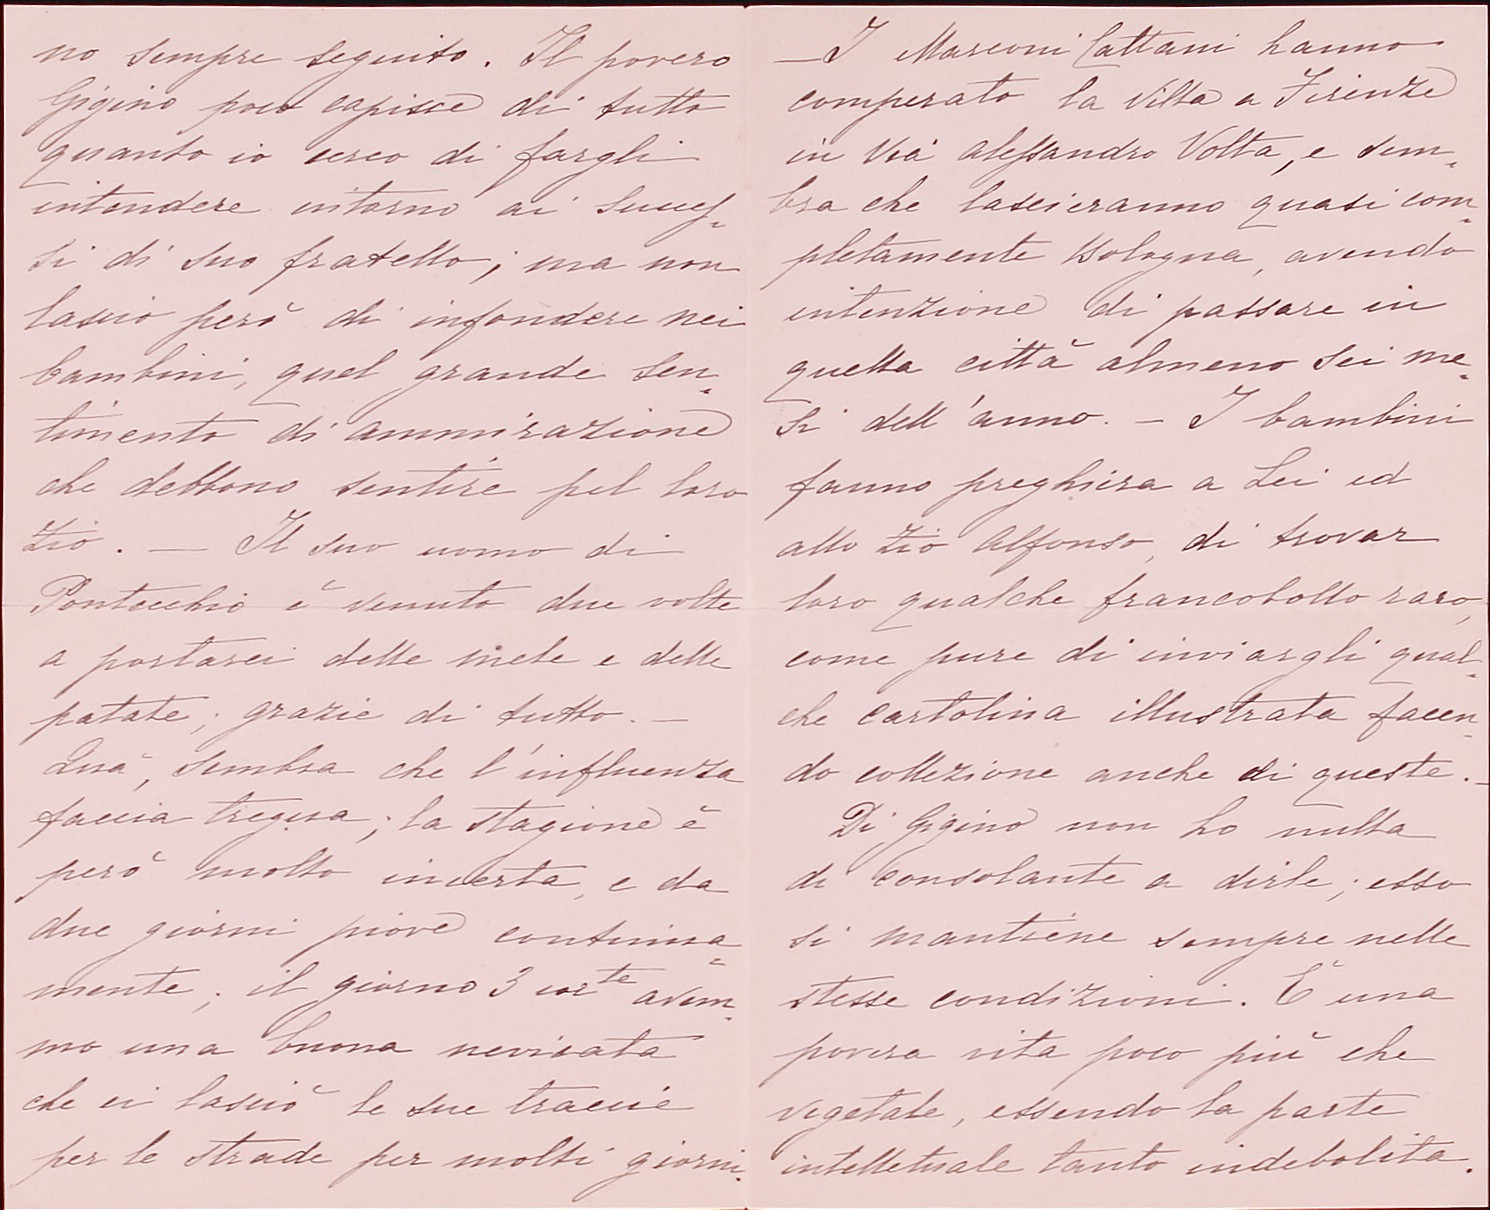 no sempre seguito. Il povero
Gigino poco capisce di tutto
quanto io cerco di fargli
intendere intorno ai succes-
si di suo fratello; ma non
lascio però di infondere nei
bambini, quel grande sen-
timento di ammirazione
che debbono sentire pel loro
zio. — Il suo uomo di
Pontecchio è venuto due volte
a portarci delle mele e delle
patate; grazie di tutto. —
Quà, sembra che l'influenza
faccia tregua; la stagione è
però molto incerta, e da
due giorni piove continua-
mente; il giorno 3 corte avem-
mo una buona nevicata
che ci lasciò le sue traccie
per le strade per molti giorni.
— I Marconi Cattani hanno
comperato la villa a Firenze
in Via Alessandro Volta, e sem-
bra che lascieranno quasi com-
pletamente Bologna, avendo
intenzione di passare in
quella città almeno sei me-
si dell'anno. — I bambini
fanno preghiera a Lei ed
allo zio Alfonso, di trovar
loro qualche francobollo raro,
come pure di inviargli qual-
che cartolina illustrata facen-
do collezione anche di queste. —
Di Gigino non ho nulla
di consolante a dirle; esso
si mantiene sempre nelle
stesse condizioni. È una
povera vita poco più che
vegetale, essendo la parte
intelletuale tanto indebolita.